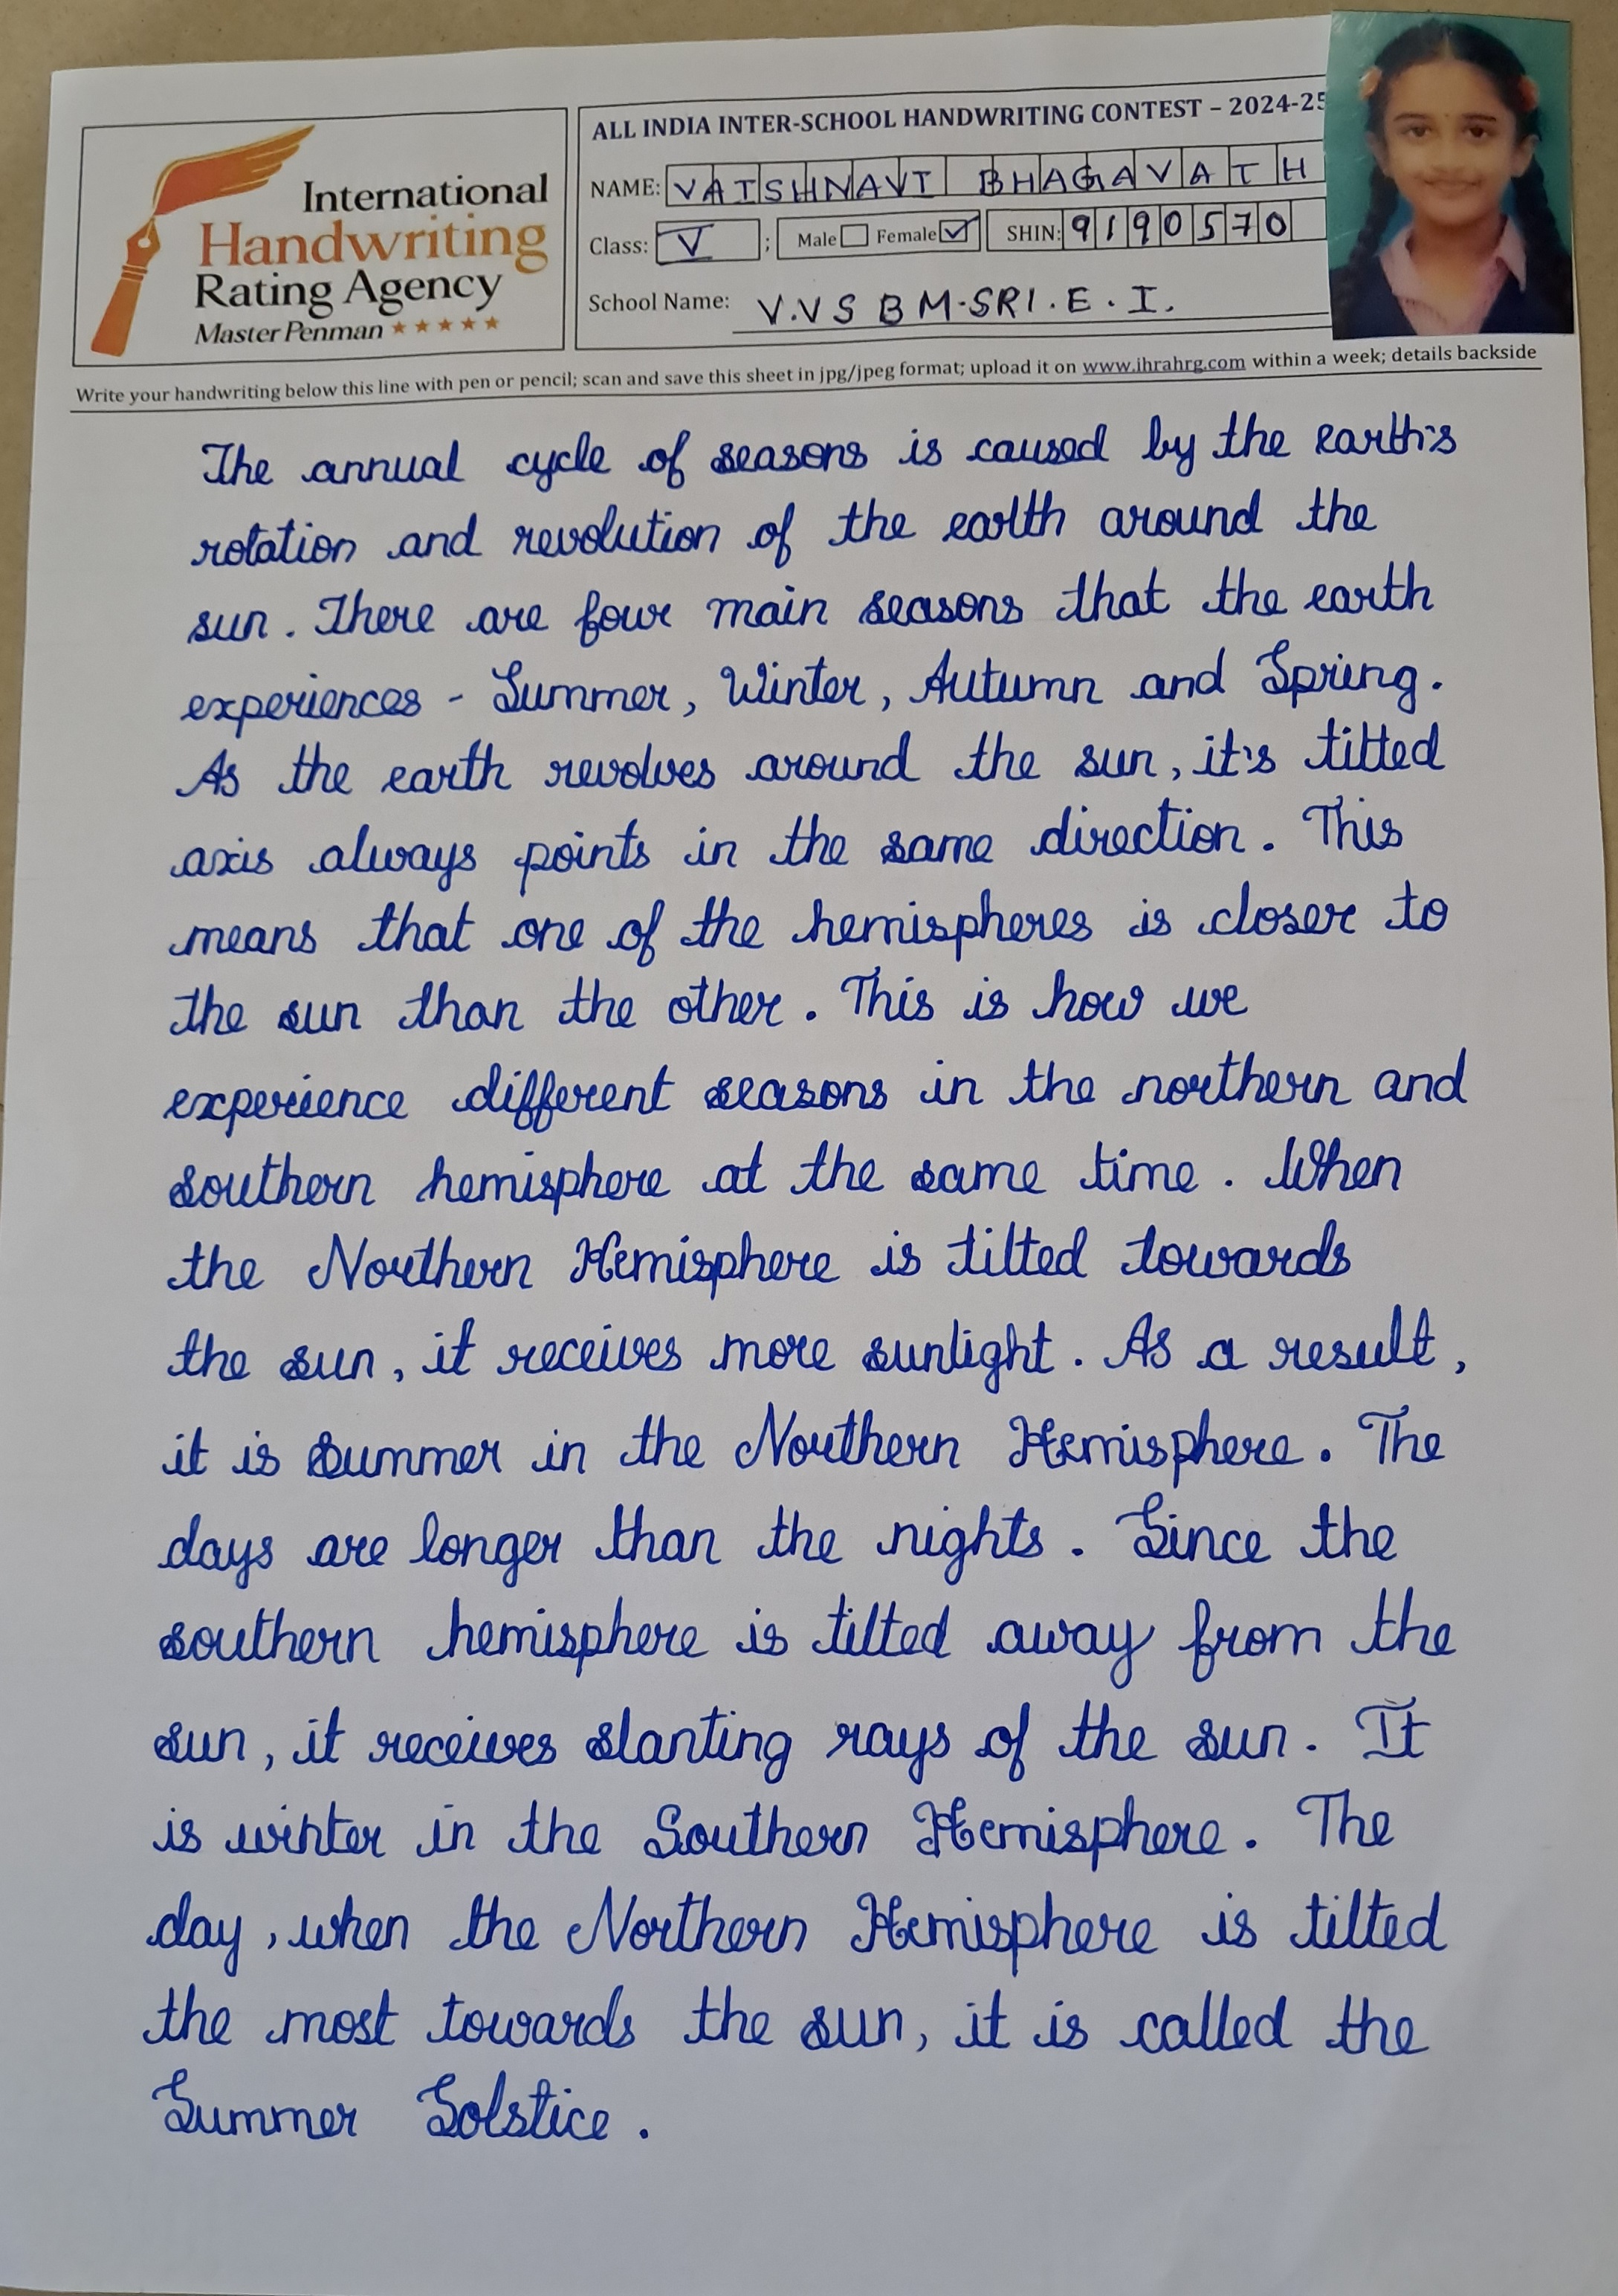 International
Handwriting
Rating Agency
Master Penman ★★★★★
ALL INDIA INTER-SCHOOL HANDWRITING CONTEST – 2024-25
NAME: VAISHNAVI BHAGAVATH
Class: V ; Male Female ✓ SHIN: 9190570
School Name: V.V S B M.SRI.E.I.
Write your handwriting below this line with pen or pencil; scan and save this sheet in jpg/jpeg format; upload it on www.ihrahrg.com within a week; details backside
The annual cycle of seasons is caused by the earth's
rotation and revolution of the earth around the
sun. There are four main seasons that the earth
experiences - Summer, Winter, Autumn and Spring.
As the earth revolves around the sun, it's titted
axis always points in the same direction. This
means that one of the hemispheres is closer to
the sun than the other. This is how we
experience different seasons in the northern and
southern hemisphere at the same time. When
the Northern Hemisphere is tilted towards
the sun, it receives more sunlight. As a result,
it is Summer in the Northern Hemisphere. The
days are longer than the nights. Since the
southern hemisphere is tilted away from the
sun, it receives slanting rays of the sun. It
is winter in the Southern Hemisphere. The
day, when the Northern Hemisphere is tilted
the most towards the sun, it is called the
Summer Solstice.